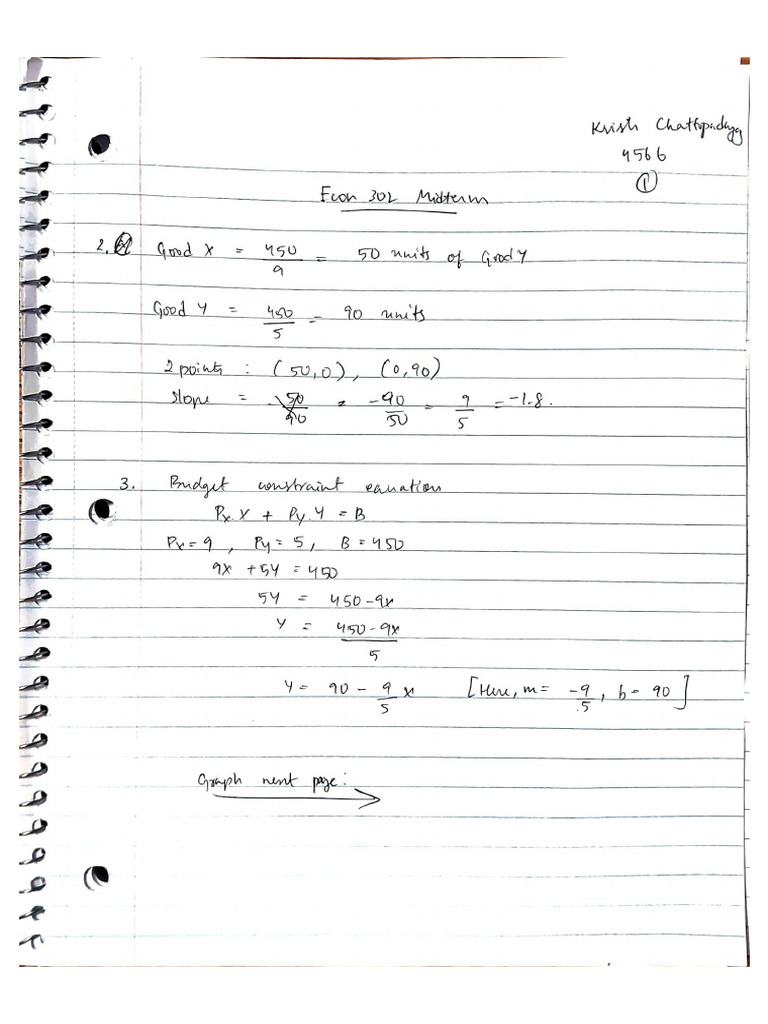 Krish Chattopadhyay
4566
①
Econ 302 Midterm
2. Good X = 450/9 = 50 units of Good Y
Good Y = 450/5 = 90 units
2 points : (50,0), (0,90)
slope = -50/90 = -90/50 = 9/5 = -1.8.
3. Budget constraint equation
Px.X + Py.Y = B
Px = 9, Py = 5, B = 450
9x + 5y = 450
5y = 450 - 9x
y = 450 - 9x/5
y = 90 - 9/5 x [Here, m = -9/5, b = 90]
Graph next page: